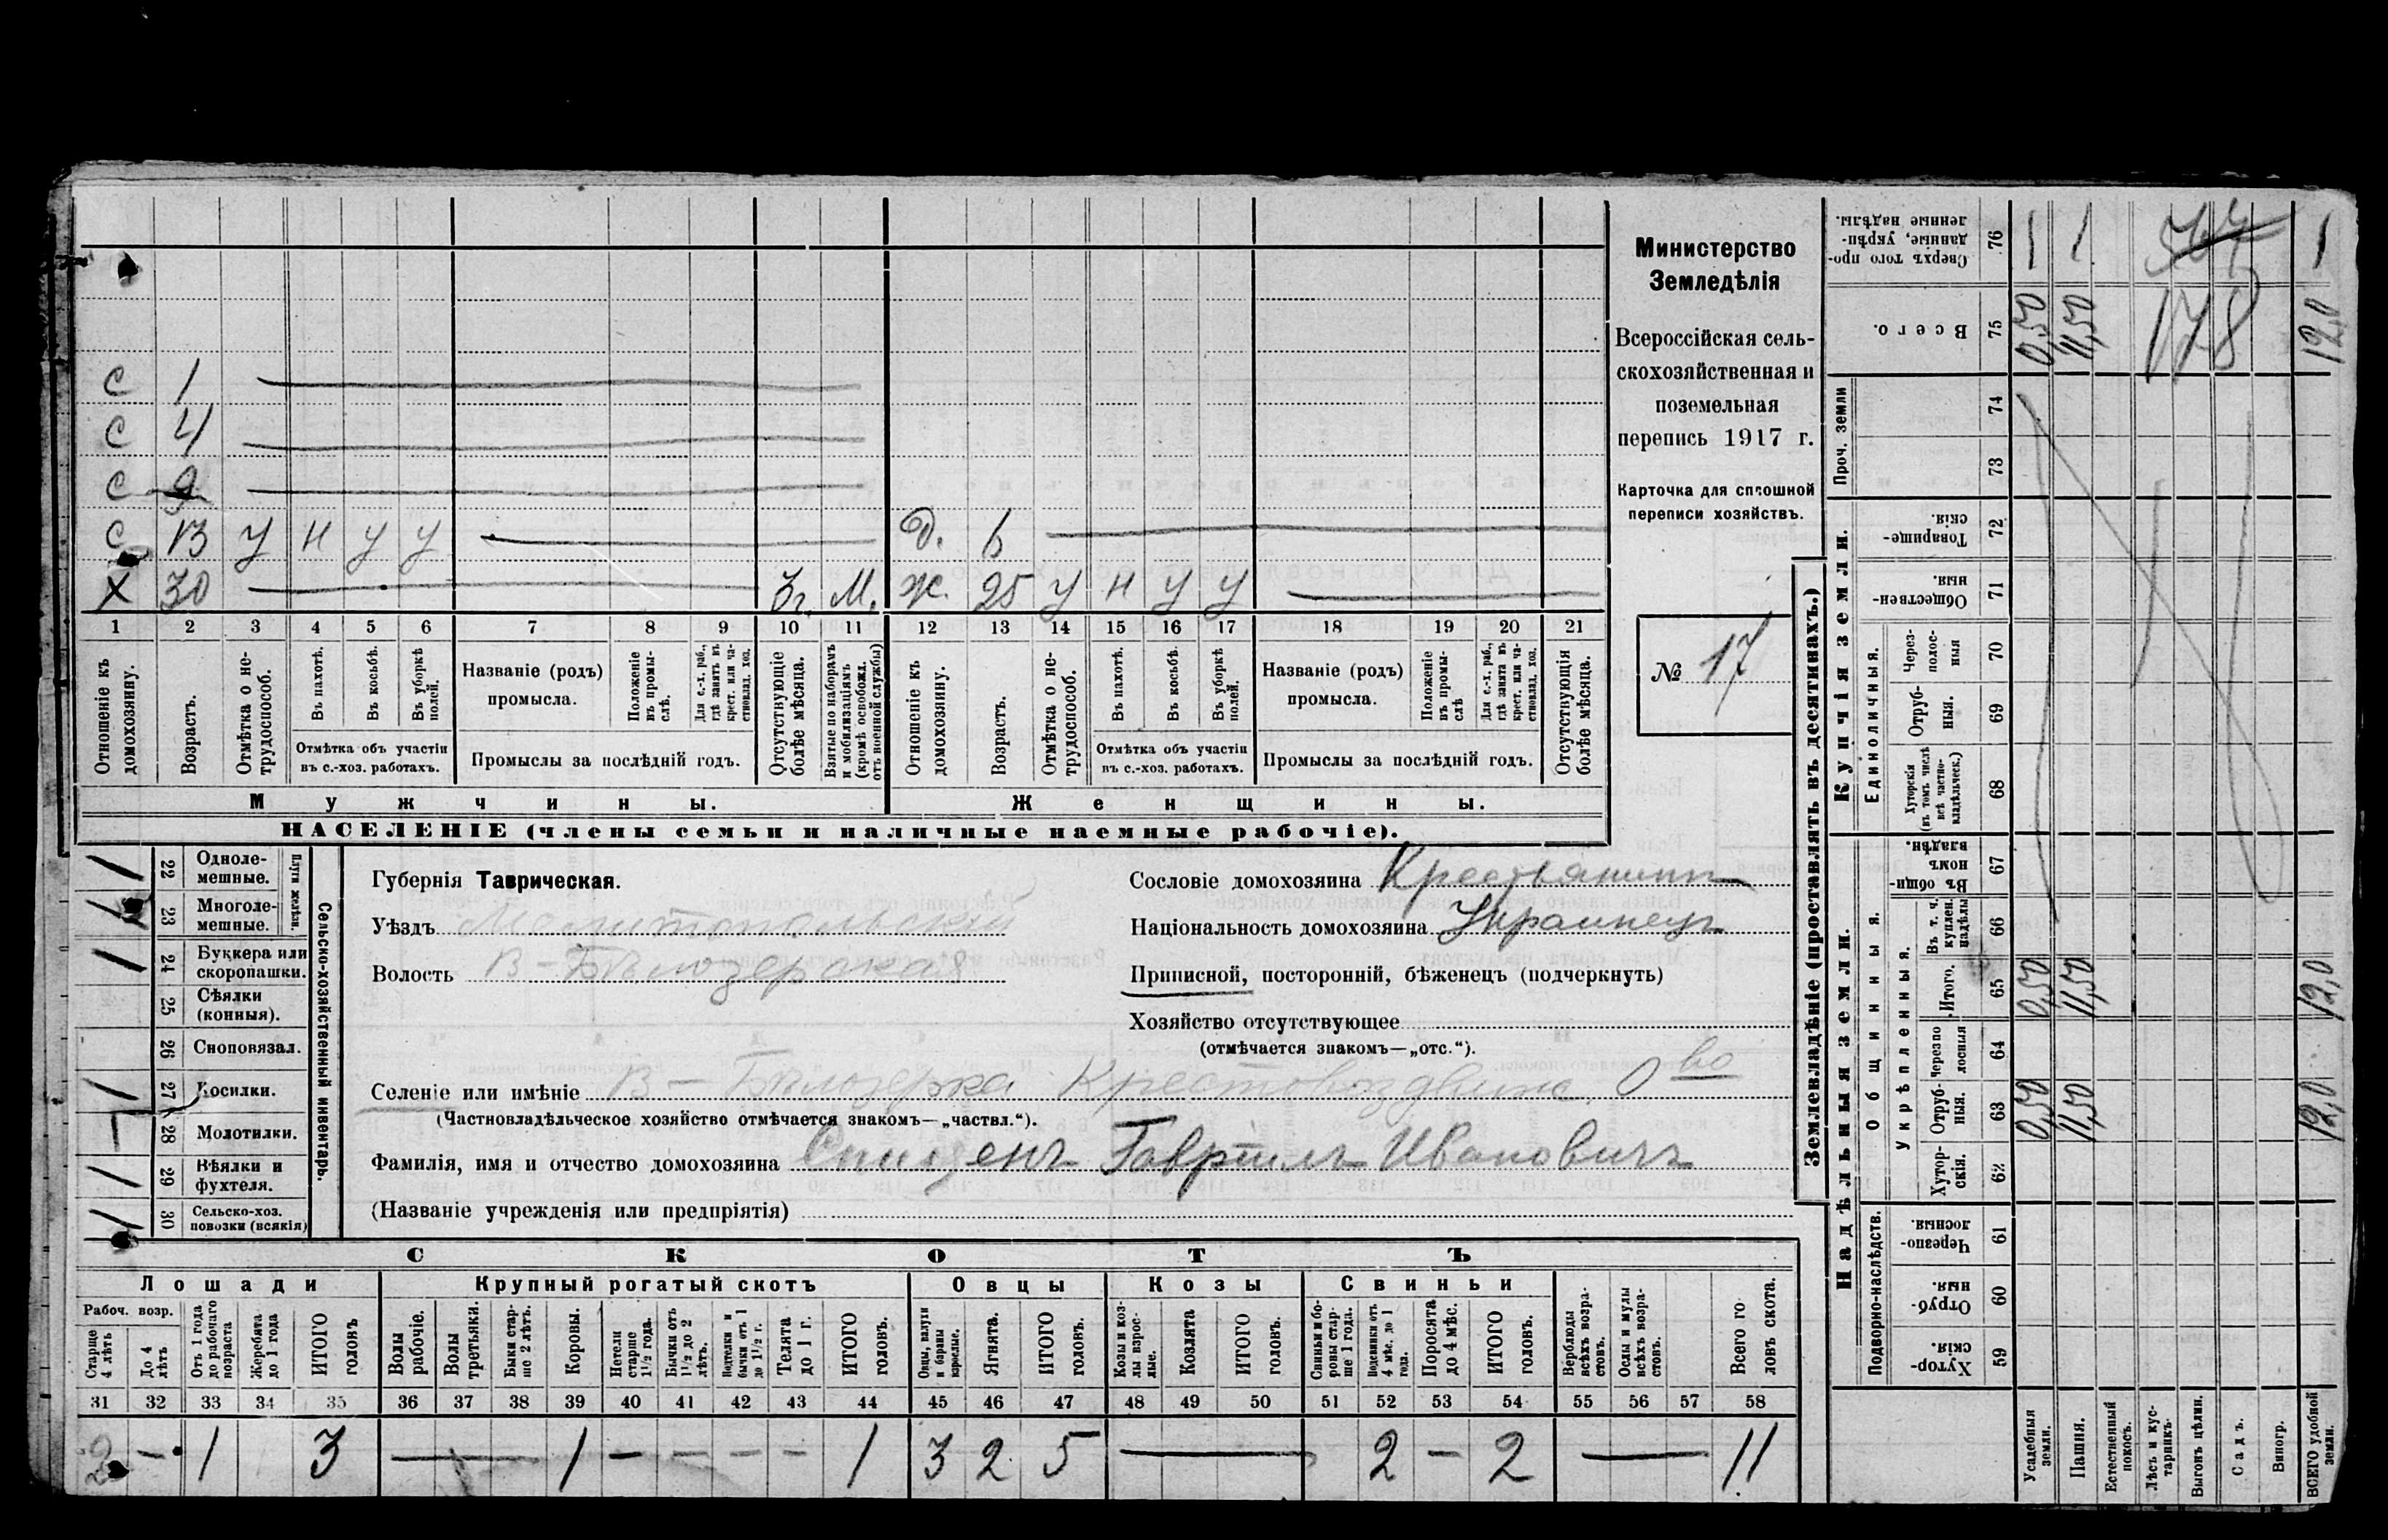 Министерство
Земледѣлія
Всероссійская сель-
скохозяйственная и
поземельная
перепись 1917 г.
Карточка для сплошной
переписи хозяйствъ.
№ 17
С 1
С 4
С 9
С 13 У Н У У
Д. 6
Х 30 3 г. М.
Ж. 25 У Н У У
1 2 3 4 5 6 7 8 9 10 11 12 13 14 15 16 17 18 19 20 21
Отношеніе къ домохозяину.
Возрастъ.
Отмѣтка о не-трудоспособ.
Въ пахотѣ.
Въ косьбѣ.
Въ уборкѣ полей.
Отмѣтка объ участіи въ с.-хоз. работахъ.
Названіе (родъ) промысла.
Положеніе въ промы-слѣ.
Для с.-х. раб., гдѣ занятъ въ крест. или ча-стновлад. хоз.
Промыслы за послѣдній годъ.
Отсутствующіе болѣе мѣсяца.
Взятые по наборамъ и мобилизаціямъ (кромѣ освобожд. отъ военной службы)
Отношеніе къ домохозяину.
Возрастъ.
Отмѣтка о не-трудоспособ.
Въ пахотѣ.
Въ косьбѣ.
Въ уборкѣ полей.
Отмѣтка объ участіи въ с.-хоз. работахъ.
Названіе (родъ) промысла.
Положеніе въ промы-слѣ
Для с.-х. раб., гдѣ занята въ крест. или ча-стновлад. хоз.
Промыслы за послѣдній годъ.
Отсутствующія болѣе мѣсяца.
Мужчины.
Женщины.
НАСЕЛЕНІЕ (члены семьи и наличные наемные рабочіе).
Сельско-хозяйственный инвентарь.
Плуги желѣзн.
1 22 Одноле-мешные.
23 Многоле-мешные.
1 24 Буккера или скоропашки.
25 Сѣялки (конныя).
26 Сноповязал.
1 27 Косилки.
28 Молотилки.
1 29 Вѣялки и фухтеля.
1 30 Сельско-хоз. повозки (всякія)
Губернія Таврическая.
Уѣздъ Мелитопольскій
Волость В-Бѣлозерская
Сословіе домохозяина Крестьянинъ
Національность домохозяина Украинецъ
Приписной, посторонній, бѣженецъ (подчеркнуть)
Хозяйство отсутствующее
(отмѣчается знакомъ—„отс.“).
Селеніе или имѣніе В-Бѣлозерка Крестовоздвиж. О во
(Частновладѣльческое хозяйство отмѣчается знакомъ—„частвл.“).
Фамилія, имя и отчество домохозяина Гавріилъ Ивановичъ
(Названіе учрежденія или предпріятія)
СКОТЪ
Лошади
Крупный рогатый скотъ
Овцы
Козы
Свиньи
Рабоч. возр.
Старше 4 лѣтъ
До 4 лѣтъ
Отъ 1 года до рабочаго возраста
Жеребята до 1 года
ИТОГО головъ
Волы рабочіе.
Волы третьяки.
Быки стар-ше 2 лѣтъ.
Коровы.
Нетели старше 1½ года.
Бычки отъ 1½ до 2 лѣтъ.
Подтелки и бычки отъ 1 до 1½ г.
Телята до 1 г.
ИТОГО головъ.
Овцы, валухи и бараны взрослые.
Ягнята.
ИТОГО головъ.
Козы и коз-лы взрос-лые.
Козлята
ИТОГО головъ.
Свиньи и бо-ровы стар-ше 1 года.
Подсвинки отъ 4 мѣс. до 1 года.
Поросята до 4 мѣс.
ИТОГО головъ.
Верблюды всѣхъ возра-стовъ.
Ослы и мулы всѣхъ возра-стовъ.
Всего го-ловъ скота.
31 32 33 34 35 36 37 38 39 40 41 42 43 44 45 46 47 48 49 50 51 52 53 54 55 56 57 58
2 — 1 3 — 1 — — — — 1 3 2 5 — 2 — 2 — 11
Землевладѣніе (проставлять въ десятинахъ.)
Надѣльныя земли.
Купчія земли.
Проч. земли
Подворно-наслѣдств.
Общинныя.
Укрѣпленныя.
Единоличныя.
Сверхъ того про-данные, укрѣп-ленные надѣлы. 76 1 1 1
Всего. 75 0,50 11,50 12,0
564
178
74
73
Товарище-скія. 72
Обществен-ныя. 71
Через-полос-ныя 70
Отруб-ныя. 69
Хуторскія (въ томъ числѣ всѣ частно-владѣльческ.) 68
Въ общин-номъ владѣн. 67
Въ т. ч. куплен. надѣлы 66
Итого. 65 0,50 11,50 12,0
Черезпо лосныя 64
Отруб-ныя. 63 0,50 11,50 12,0
Хутор-скія. 62
Черезпо-лосныя. 61
Отруб-ныя. 60
Хутор-скія. 59
Усадебныя земли.
Пашня.
Естественный покосъ.
Лѣсъ и кус-тарникъ.
Выгонъ цѣлин.
Садъ.
Виногр.
ВСЕГО удобной земли.